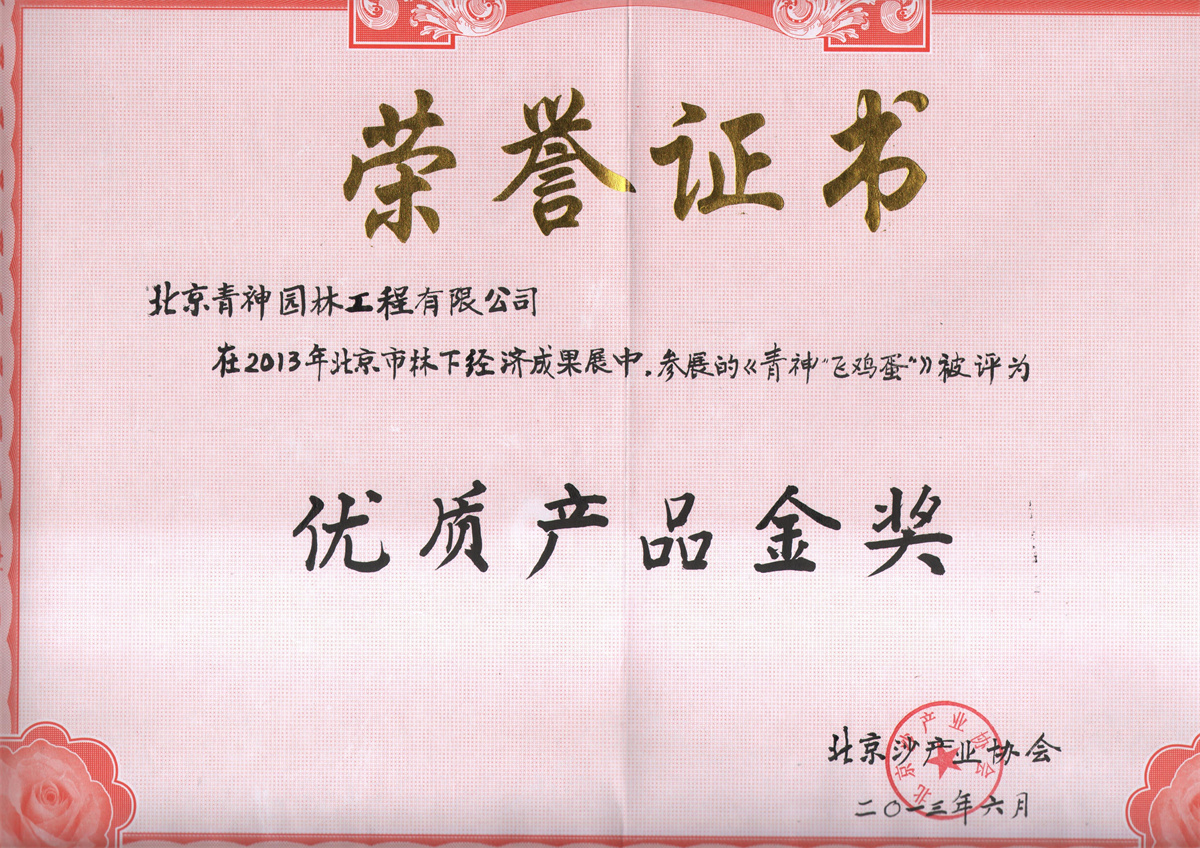 荣誉证书
北京青神园林工程有限公司
在2013年北京市林下经济成果展中,参展的《青神“飞鸡蛋”》被评为
优质产品金奖
北京沙产业协会
二〇一三年六月
北京沙产业协会